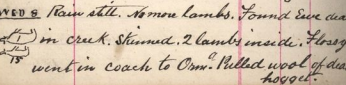 WED 8 Rain still. No more lambs. Found Ewe dea
1 in creek. Skinned. 2 lambs inside. Floss
15 went in coach to Orm. Pulled wool of dea
hogget.